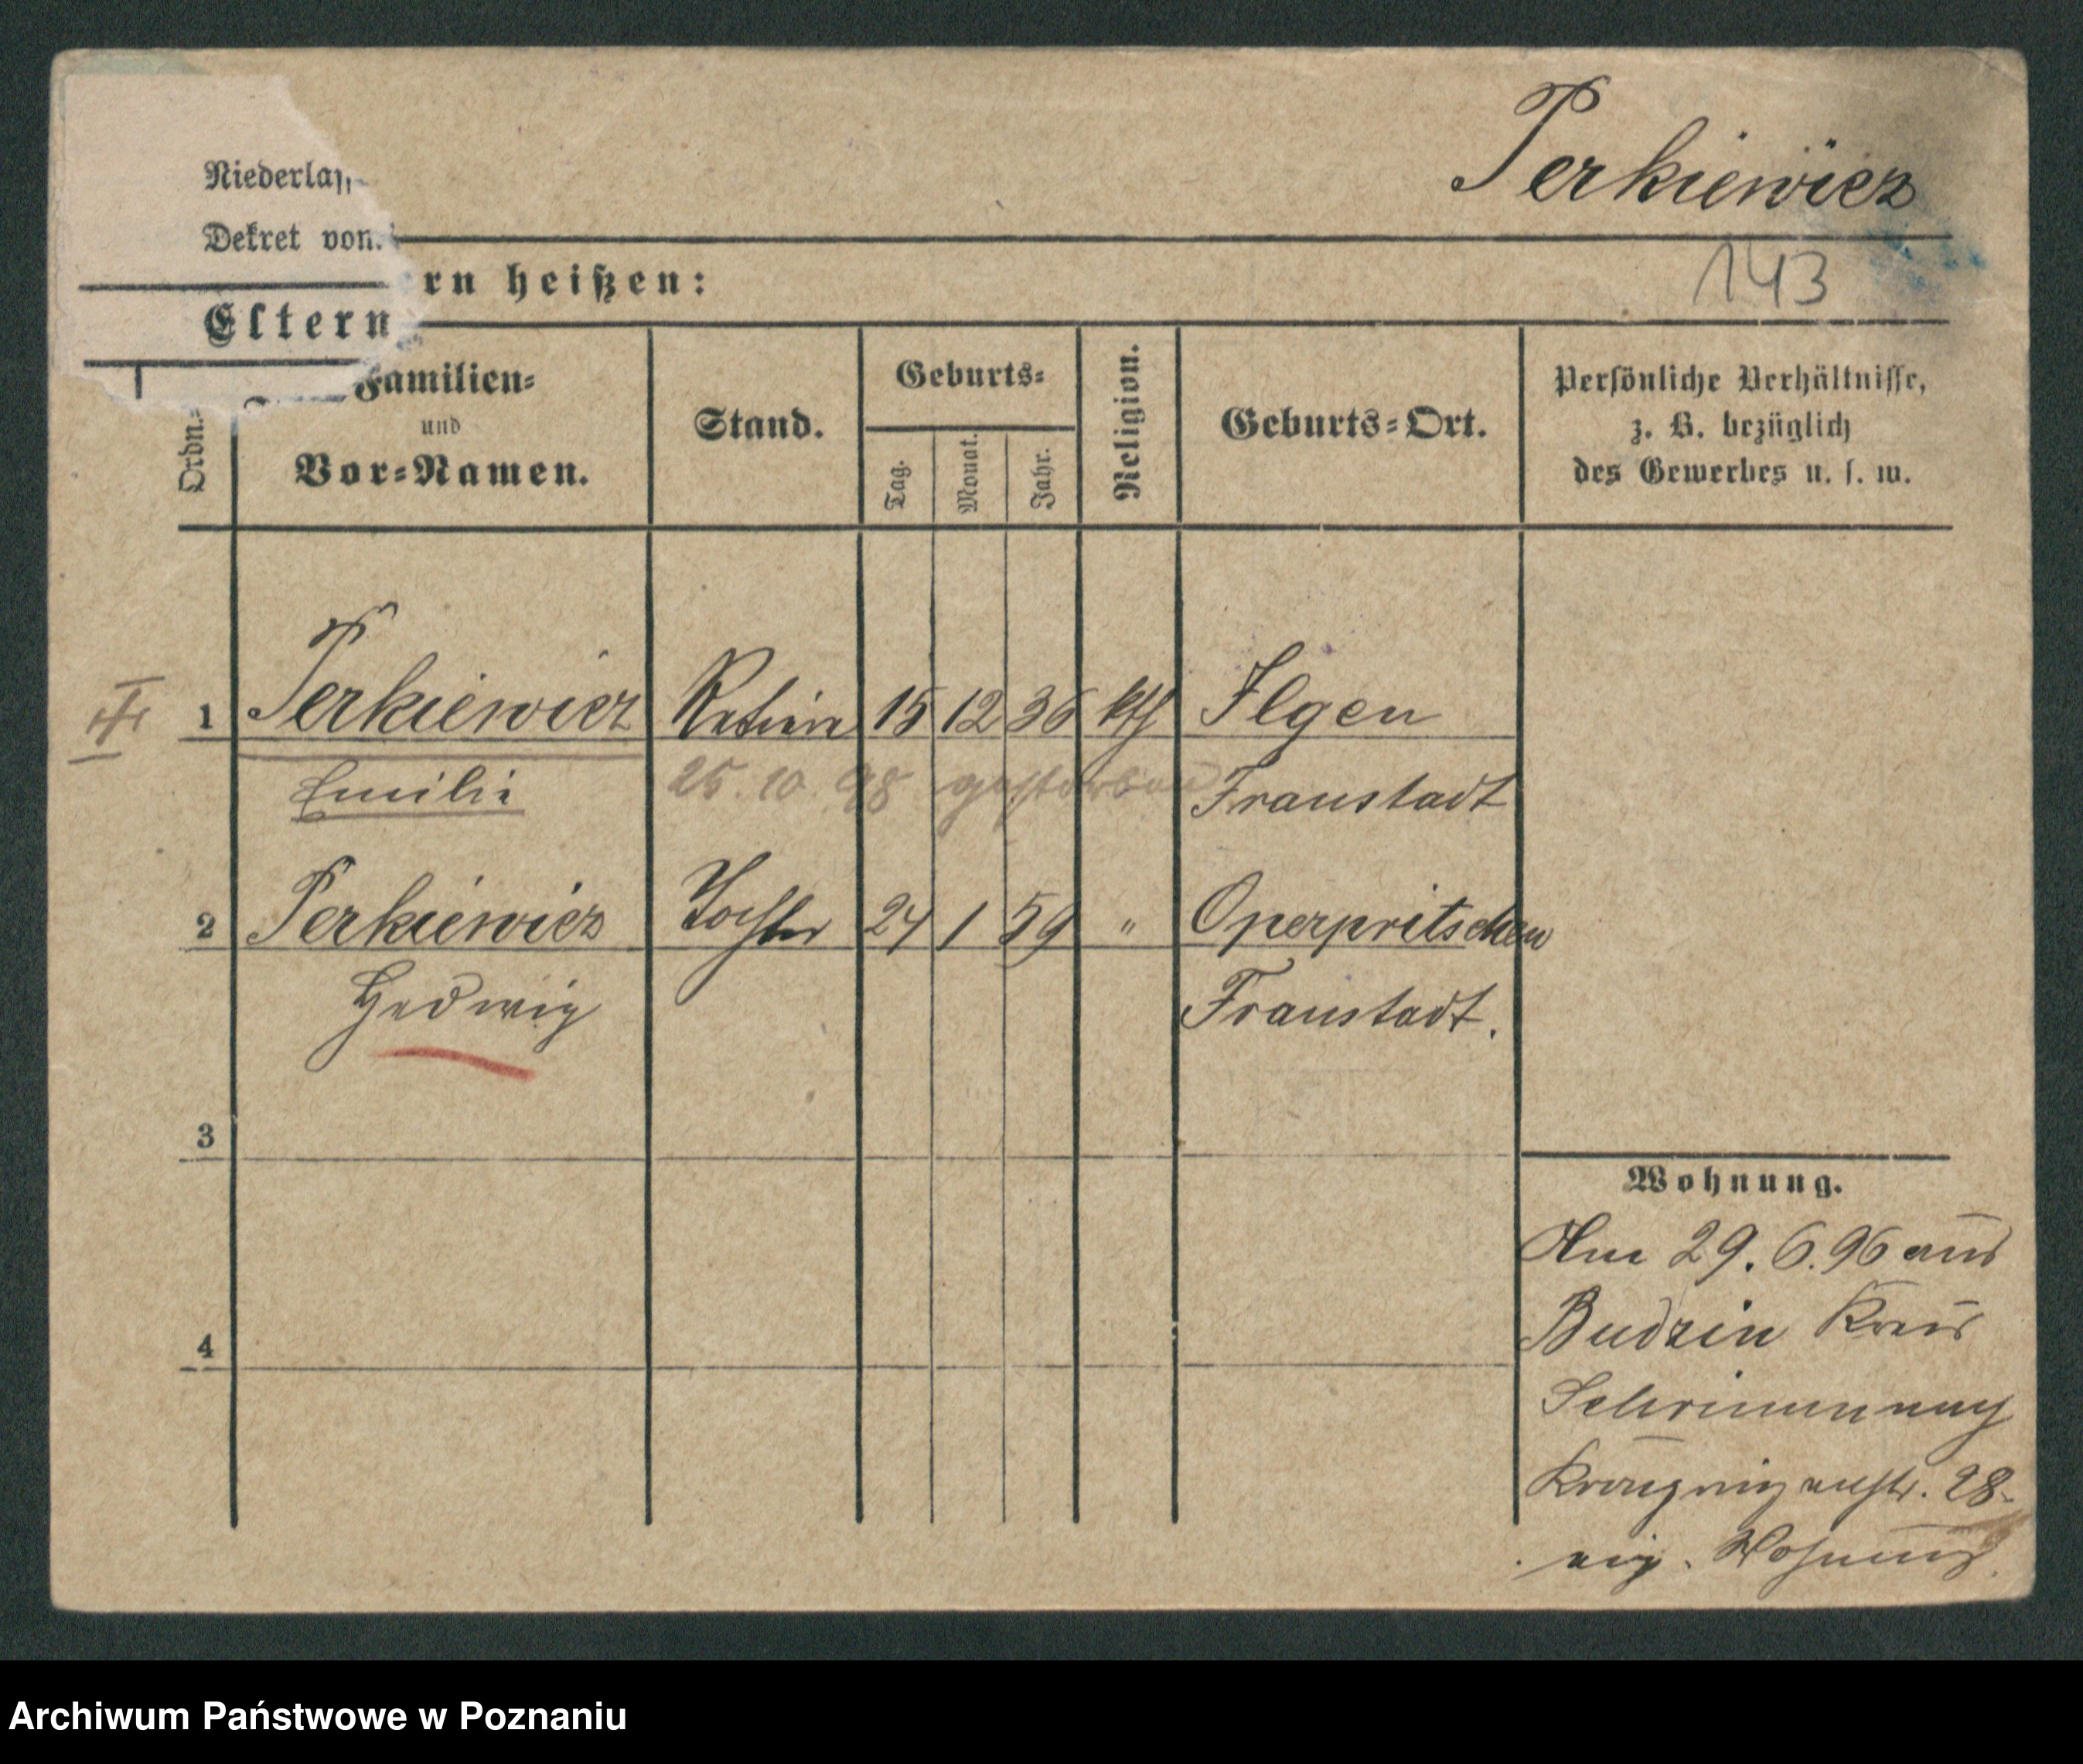 Perkiewicz
Niederlass
Dekret von
143
ern heißen:
Eltern
Ordn.=
Familien=
und
Vor=Namen.
Stand.
Geburts=
Tag.
Monat.
Jahr.
Religion.
Geburts=Ort.
Persönliche Verhältnisse,
z. B. bezüglich
des Gewerbes u. s. w.
1 Perkiewicz 15 12 36 kth Ilgen
Emilie 25. 10. 98 gestorben Fraustadt
2 Perkiewicz Tochter 24 1 59 " Operpritschen
Hedwig Fraustadt.
3
Wohnung.
Am 29. 6. 96 aus
4 Budzin Kreis
Schrimm nach
28
eig. Wohnung.
Archiwum Państwowe w Poznaniu